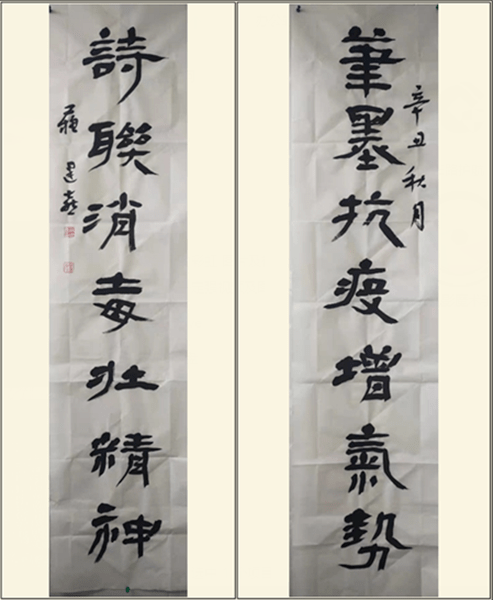 辛丑秋月
筆墨抗疫增氣勢
詩聯消毒壯精神